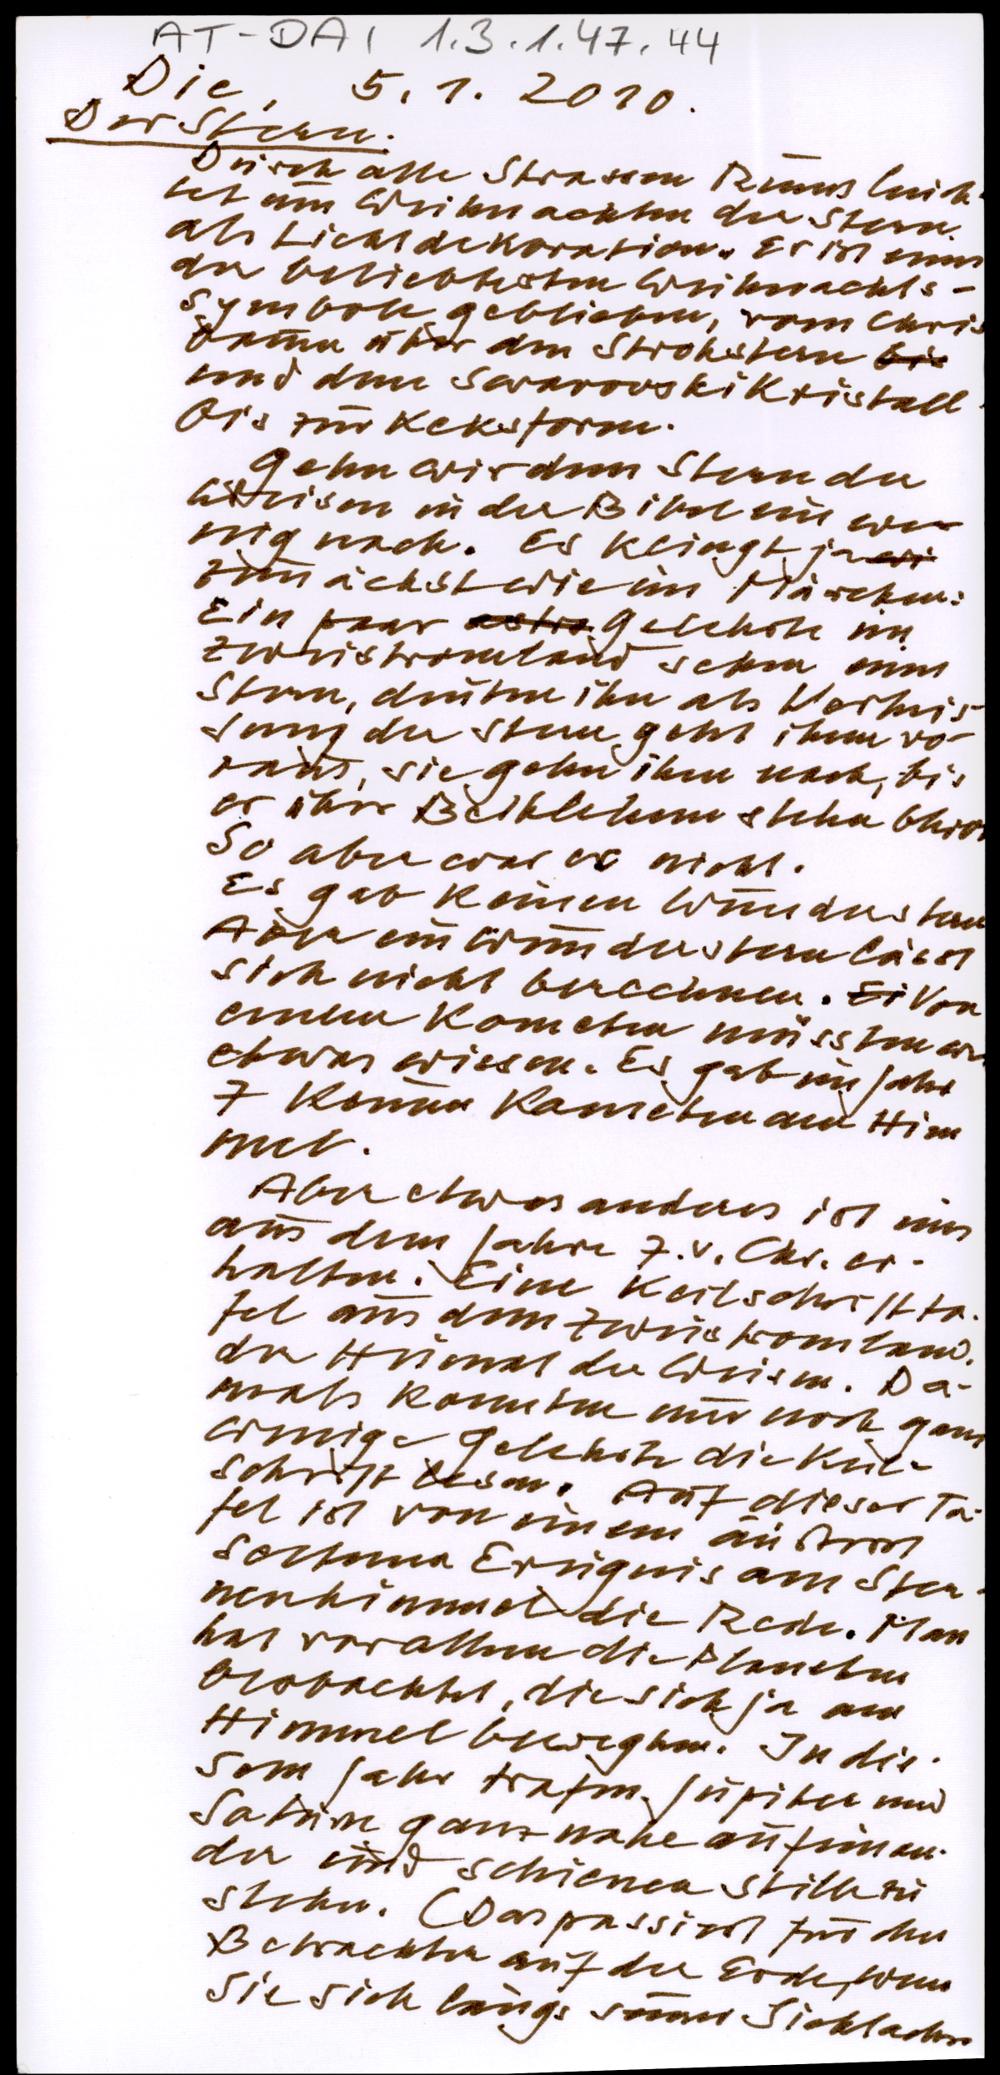 AT-DAI 1.3.1.47.44
Die, 5.1.2010.
Der Stern.
Durch alle Strassen Rums leuch-
tet um Weihnachten der Stern
als Lichtdekoration. Er ist eines
der beliebtesten Weihnachts-
symbole geblieben, vom Chris
baum über den Strohstern bis
und dem Swarovski Kristall
bis zur Keksform.
Gehn wir dem Stern der
Weisen in der Bibel ein we-
nig nach. Es klingt ja
zunächst wie ein Märchen:
Ein paar astro Gelehrte im
Zweistromland sehen einen
Stern, deuten ihn als Verheis-
sung der Stern geht ihnen vo-
raus, sie gehn ihm nach, bis
er über Bethlehem stehn bleibt
So aber war es nicht.
Es gab keinen Wunderstern
Aber ein Wunderstern lässt
sich nicht berechnen. Ei Von
einem Kometen müssten wir
etwas wissen. Es gab im Jahr
7 keinen Kometen am Him
mel.
Aber etwas anderes ist uns
aus dem Jahre 7.v. Chr. er-
halten. Eine Keilschriftta-
fel aus dem Zweistromland,
der Heimat der Weisen. Da-
mals konnten nur noch ganz
wenige Gelehrte die Keil-
schrift lesen. Auf dieser Ta-
fel ist von einem äußerst
seltenen Ereignis am Ster-
nenhimmel die Rede. Man
hat vor allem die Planeten
beobachtet, die sich ja am
Himmel bewegten. In die-
sem Jahr trafen Jupiter und
Saturn ganz nahe aufeinan-
der und schienen still zu
stehn. (Das passiert für den
Betrachter auf der Erde, wenn
sie sich längs seiner